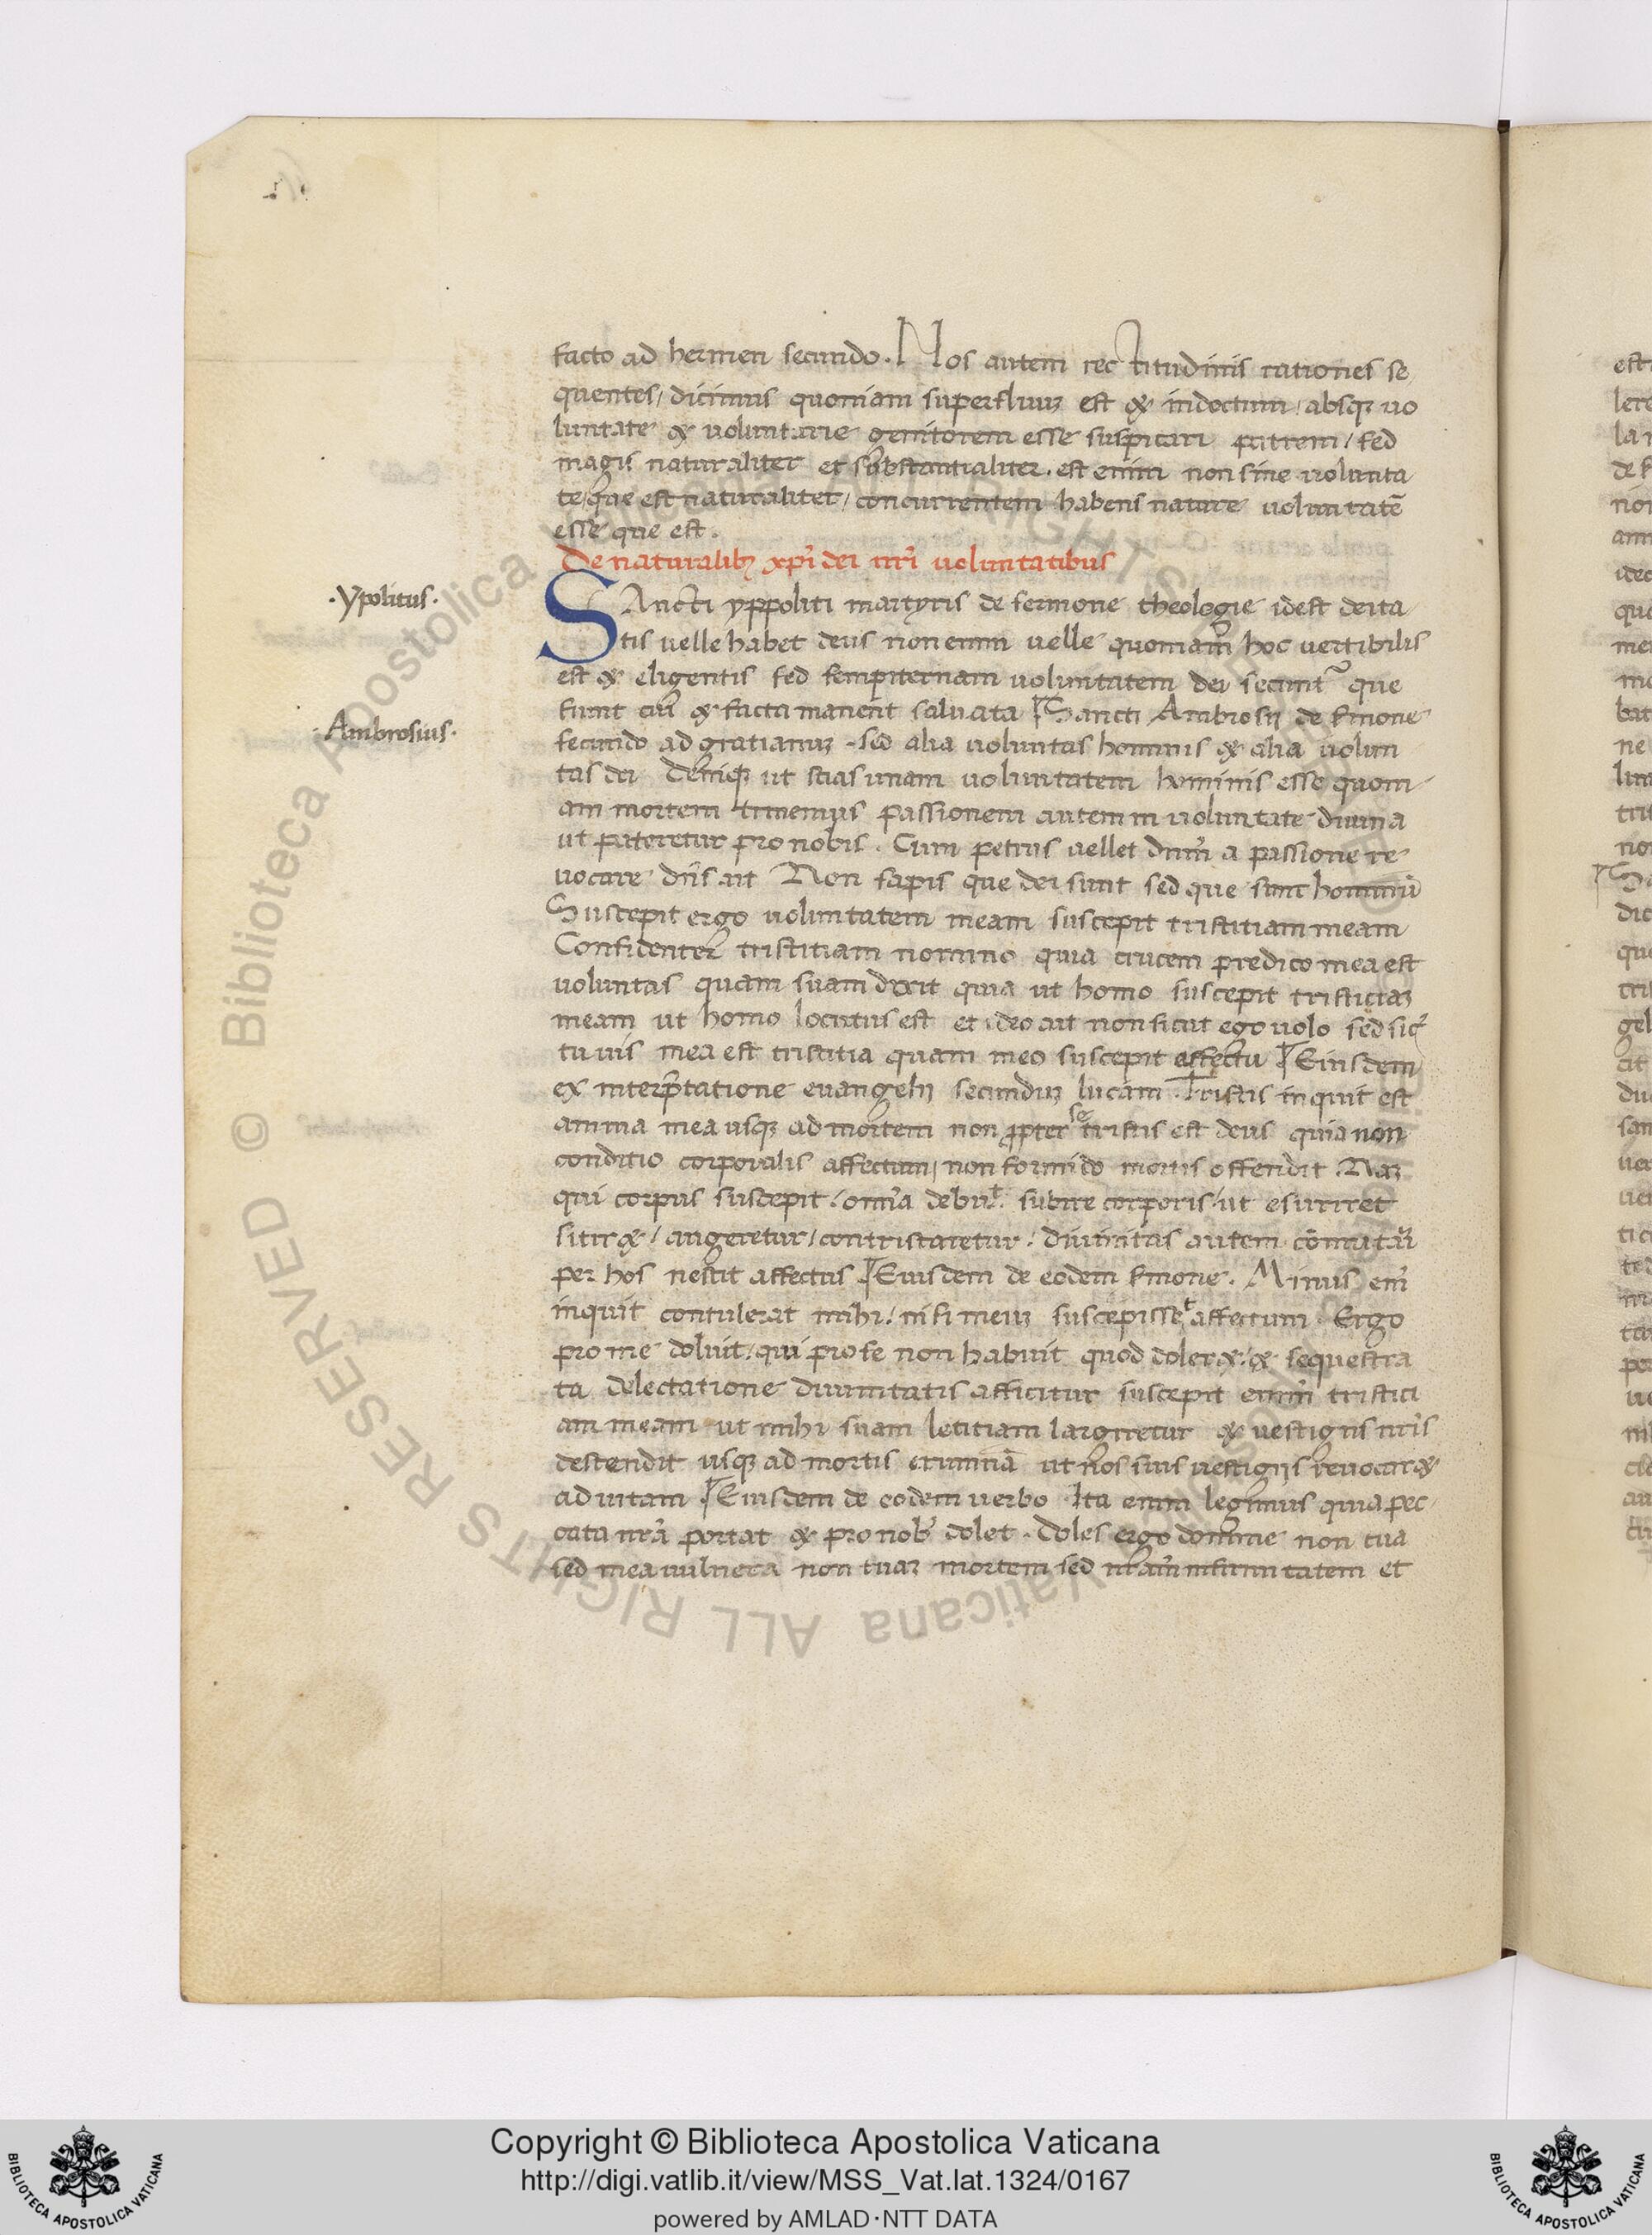 facto ad hermen secundo. Nos autem rectitudinis rationes se
quentes/ dicimus quoniam superfluuʒ est & indoctum/ absqʒ uo
luntate & voluntarie genitorem esse suspicari patrem/ sed
magis naturaliter et substantialiter. est enim non sine volunta
te/ que est naturaliter/ concurrentem habens nature voluntatē
esse que est.
De naturalibʒ xp̄i dei nr̄i voluntatibus
·Ypolitus·
SAncti yppoliti martyris de sermone theologie idest deita
tis velle habet deus non enim velle quoniam hoc vertibilis
est & eligentis sed sempiternam voluntatem dei secunt᷑ que
·Ambrosius·
fiunt cui & facta manent saluata ¶Sancti Ambrosij de s̄mone
secundo ad gratianuʒ . sed alia voluntas hominis & alia volun
tas dei deniqʒ ut scias unam voluntatem hominis esse quoni
am mortem timemus passionem autem in voluntate diuina
ut pateretur pro nobis . Cum petrus vellet dnm̄ a passione re
uocare dn̄s ait Non sapis que dei sunt sed que sunt hominū
Suscepit ergo voluntatem meam suscepit tristitiam meam
Confidenter tristitiam nomino quia crucem predico mea est
voluntas quam suam dixit quia ut homo suscepit tristiciaʒ
meam ut homo locutus est et ideo ait non sicut ego uolo sed sic̄
tu uis mea est tristitia quam meo suscepit affectu ¶Eiusdem
ex interp̄tatione euangelij secunduʒ lucam . Tristis inquit est
anima mea usqʒ ad mortem non ꝓpter se tristis est deus quia non
conditio corporalis affectum/ non formido mortis offendit . Naʒ
qui corpus suscepit/ omīa debuit subire corporis/ ut esuriret
sitir&/ angeretur/ contristaretur/ diuinitas autem cōmutari
per hos nescit affectus ¶Eiusdem de eodem s̄mone . Minus em̄
inquit contulerat mihi/ nisi meuʒ suscepisset affectum Ergo
pro me doluit/ qui pro se non habuit quod doler&/ & sequestra
ta delectatione diuinitatis afficitur suscepit enim tristici
am meam ut mihi suam letitiam largiretur & vestigiis nr̄is
descendit usqʒ ad mortis erumnā ut nos suis vestigijs reuocar&
ad uitam ¶Eiusdem de eodem uerbo Ita enim legimus quia pec
cata nr̄a portat & pro nob̄ dolet . doles ergo domine non tua
sed mea uulnera non tuaʒ mortem sed nr̄am infirmitatem et
Copyright © Biblioteca Apostolica Vaticana
http://digi.vatlib.it/view/MSS_Vat.lat.1324/0167
powered by AMLAD·NTT DATA